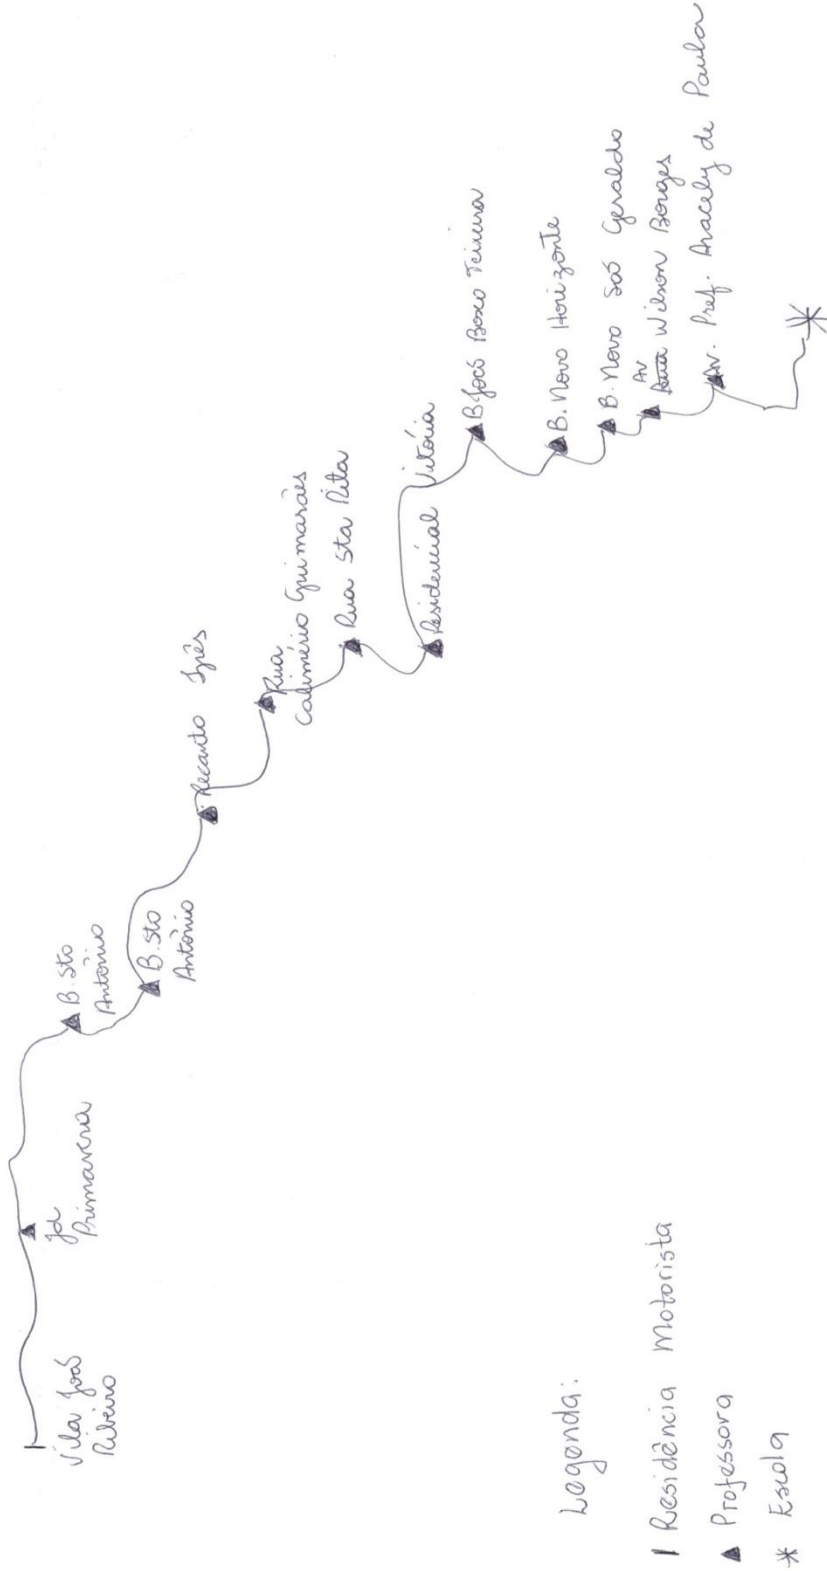 Vila João
Ribeiro
Jd
Primavera
B. Sto
Antônio
B. Sto
Antônio
Recanto Ipês
Rua
Calimério Guimarães
Rua Sta Rita
Residencial Vitória
B João Bosco Teixeira
B. Novo Horizonte
B. Novo São Geraldo
Av
Rua Wilson Borges
Av. Pref. Aracely de Paula
Legenda:
Residência Motorista
Professora
Escola